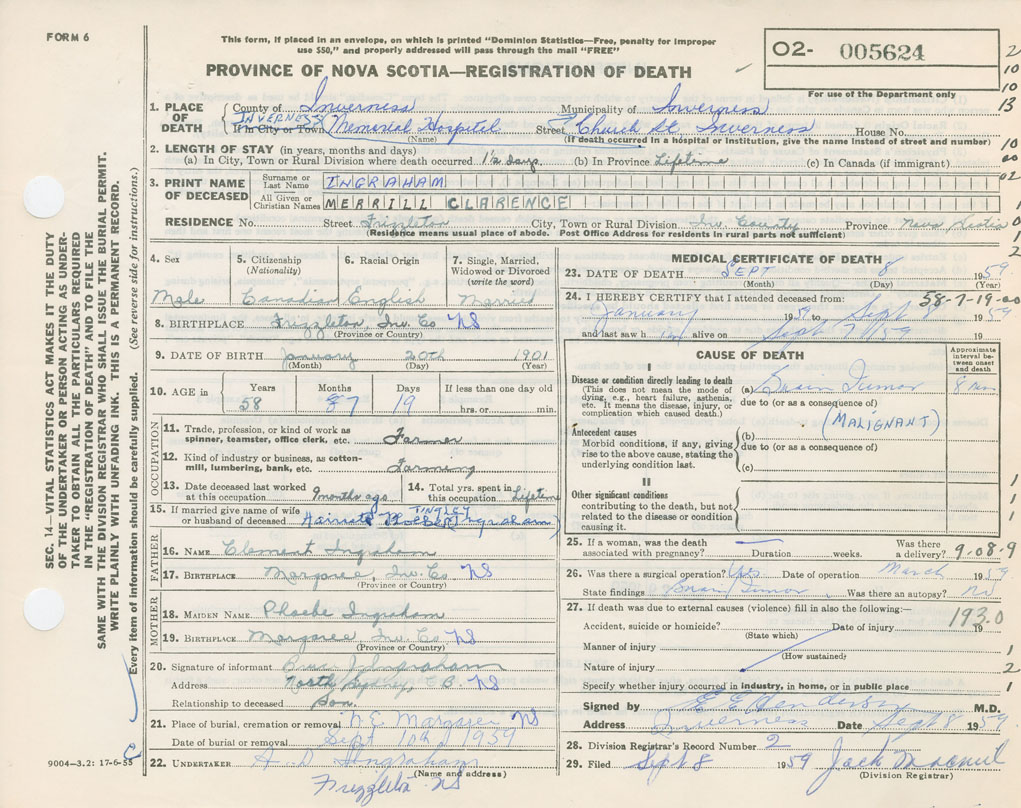 FORM 6
This form, if placed in an envelope, on which is printed "Dominion Statistics—Free, penalty for improper
use $50," and properly addressed will pass through the mail "FREE"
PROVINCE OF NOVA SCOTIA—REGISTRATION OF DEATH
02- 005624
For use of the Department only
2
10
10
13
10
00
02
1
0
1
2
1. PLACE OF DEATH
County of Inverness Municipality of Inverness
INVERNESS
If in City or Town Memorial Hospital Street Church St. Inverness House No.
(Name) (If death occurred in a hospital or institution, give the name instead of street and number)
2. LENGTH OF STAY (in years, months and days)
(a) In City, Town or Rural Division where death occurred 1½ days (b) In Province Lifetime (c) In Canada (if immigrant)
3. PRINT NAME OF DECEASED
Surname or Last Name INGRAHAM
All Given or Christian Names MERRILL CLARENCE
RESIDENCE No. Street Frizzleton City, Town or Rural Division Inv. County Province Nova Scotia
(Residence means usual place of abode. Post Office Address for residents in rural parts not sufficient)
4. Sex
Male
5. Citizenship
(Nationality)
Canadian
6. Racial Origin
English
7. Single, Married, Widowed or Divorced
(write the word)
Married
8. BIRTHPLACE Frizzleton, Inv. Co NS
(Province or Country)
9. DATE OF BIRTH January 20th 1901
(Month) (Day) (Year)
10. AGE in
Years Months Days If less than one day old
58 7 19 hrs. or min.
OCCUPATION
11. Trade, profession, or kind of work as
spinner, teamster, office clerk, etc. Farmer
12. Kind of industry or business, as cotton-
mill, lumbering, bank, etc. Farming
13. Date deceased last worked
at this occupation 9 months ago
14. Total yrs. spent in
this occupation Lifetime
15. If married give name of wife
or husband of deceased Harriett TINGLEY Ingraham)
FATHER
16. NAME Clement Ingraham
17. BIRTHPLACE Margaree, Inv. Co NS
(Province or Country)
MOTHER
18. MAIDEN NAME Phoebe Ingraham
19. BIRTHPLACE Margaree Inv. Co NS
(Province or Country)
20. Signature of informant Ingraham
Address North Sydney, C.B. NS
Relationship to deceased Son.
21. Place of burial, cremation or removal N.E. Margaree NS
Date of burial or removal Sept 10th 1959
22. UNDERTAKER A. D. Ingraham
(Name and address)
Frizzleton NS
MEDICAL CERTIFICATE OF DEATH
23. DATE OF DEATH SEPT 8 1959
(Month) (Day) (Year)
24. I HEREBY CERTIFY that I attended deceased from: 58-7-19-00
January 1959 to Sept 8 1959
and last saw him alive on Sept 7/59
CAUSE OF DEATH
Approximate interval between onset and death
I
Disease or condition directly leading to death
(This does not mean the mode of dying, e.g., heart failure, asthenia, etc. It means the disease, injury, or complication which caused death.)
(a) Brain Tumor 8 mos
due to (or as a consequence of)
(MALIGNANT)
Antecedent causes
Morbid conditions, if any, giving rise to the above cause, stating the underlying condition last.
(b)
due to (or as a consequence of)
(c)
II
Other significant conditions
contributing to the death, but not related to the disease or condition causing it.
1
1
1
25. If a woman, was the death
associated with pregnancy? Duration weeks. Was there a delivery?
9-08-9
26. Was there a surgical operation? Yes Date of operation March 1959
State findings Brain Tumor Was there an autopsy? No
27. If death was due to external causes (violence) fill in also the following:—
193.0
Accident, suicide or homicide? Date of injury 19
(State which)
Manner of injury
(How sustained)
1
Nature of injury
2
Specify whether injury occurred in industry, in home, or in public place
1
Signed by E E Henderson M.D.
Address Inverness Date Sept 8 1959
28. Division Registrar's Record Number 2
29. Filed Sept 8 1959 Jack
(Division Registrar)
SEC. 14—VITAL STATISTICS ACT MAKES IT THE DUTY
OF THE UNDERTAKER OR PERSON ACTING AS UNDER-
TAKER TO OBTAIN ALL THE PARTICULARS REQUIRED
IN THE "REGISTRATION OF DEATH" AND TO FILE THE
SAME WITH THE DIVISION REGISTRAR WHO SHALL ISSUE THE BURIAL PERMIT.
WRITE PLAINLY WITH UNFADING INK. THIS IS A PERMANENT RECORD.
Every item of information should be carefully supplied. (See reverse side for instructions.)
9004—3.2: 17-6-55
C